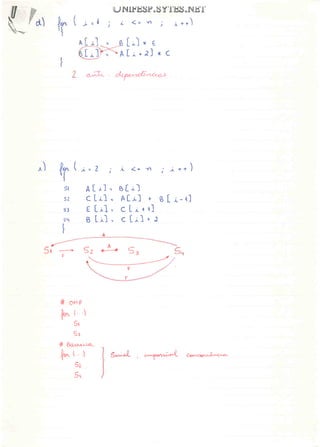 UNIFESP.SYTES.NET
d) for ( i=1 ; i <= n ; i++)
A[i] = B[i] * E
B[i] = A[i+2] * C
}
2 anti-dependências
for ( i=2 ; i <= n ; i++)
S1 A[i] = B[i]
S2 C[i] = A[i] + B[i-1]
S3 E[i] = C[i+1]
S4 B[i] = C[i] + 2
}
S1 S2 S3 S4
# OMP
for (...)
S1
S3
# Barreira
for (...)
S2
S4